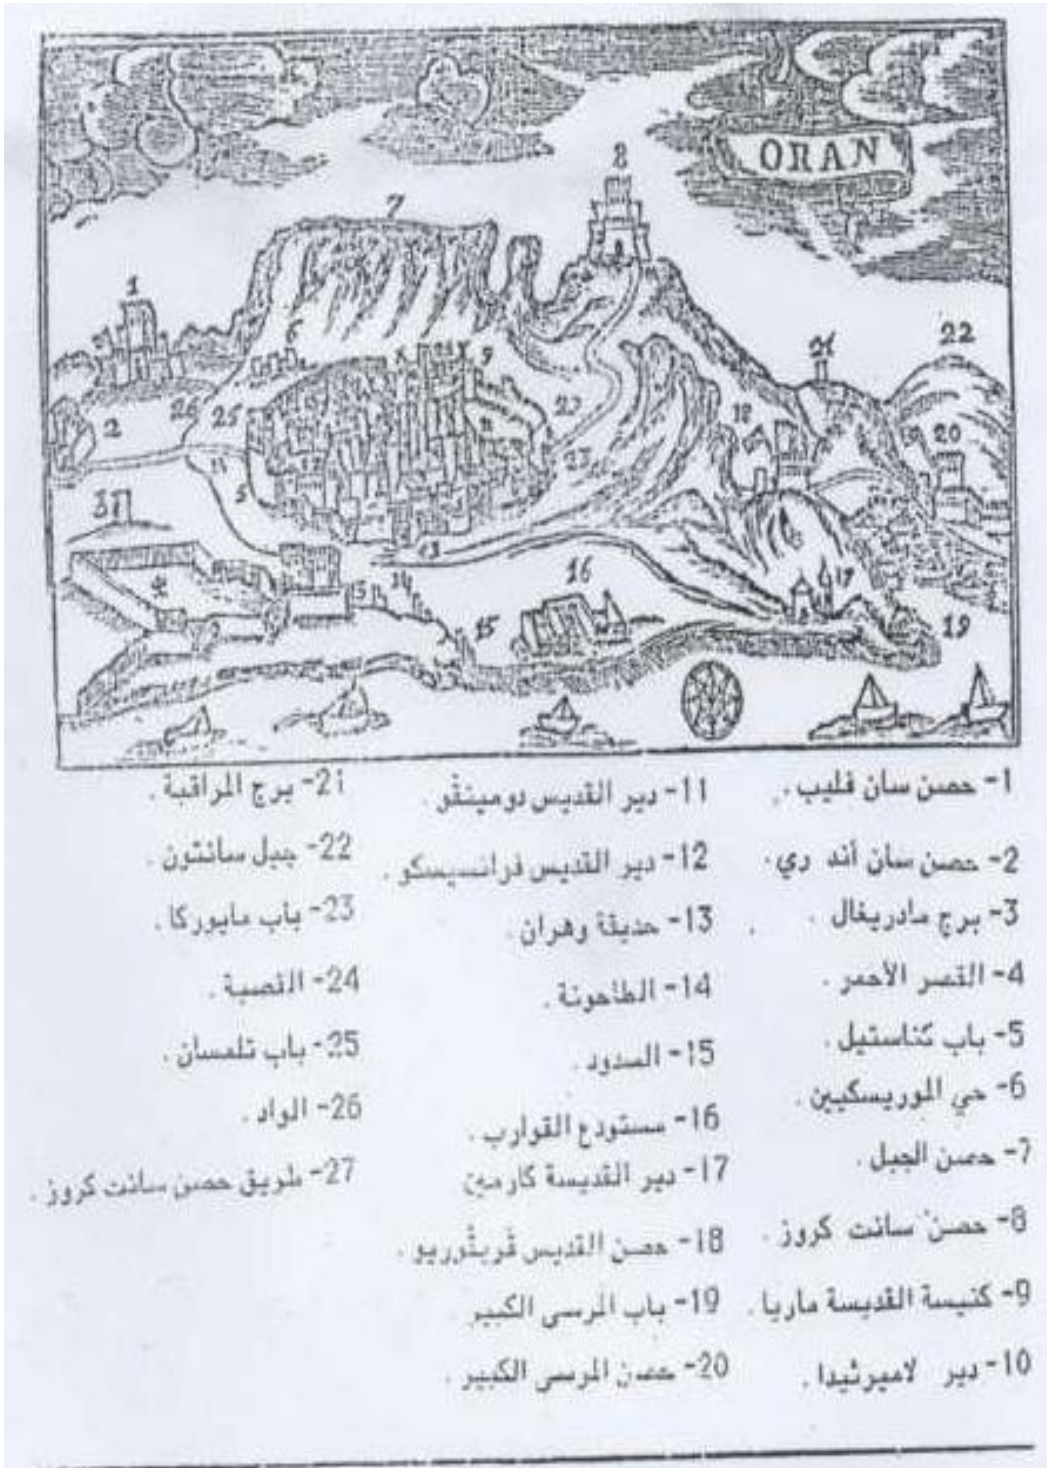 ORAN
1- حصن سان فليب .
2- حصن سان أند ري .
3- برج مادريغال .
4- القصر الأحمر .
5- باب كناستيل .
6- حي الموريسكيين .
7- حصن الجبل .
8- حصن سانت كروز .
9- كنيسة القديسة ماريا .
10- دير لاميرثيدا .
11- دير القديس دومينڤو .
12- دير القديس فرانسيسكو .
13- حديقة وهران .
14- الطاحونة .
15- السدود .
16- مستودع القوارب .
17- دير القديسة كارمين
18- حصن القديس
19- باب المرسى الكبير
20- حصن المرسى الكبير .
21- برج المراقبة .
22- جبل سانتون .
23- باب مايوركا .
24- القصبة .
25- باب تلمسان .
26- الواد .
27- طريق حصن سانت كروز .